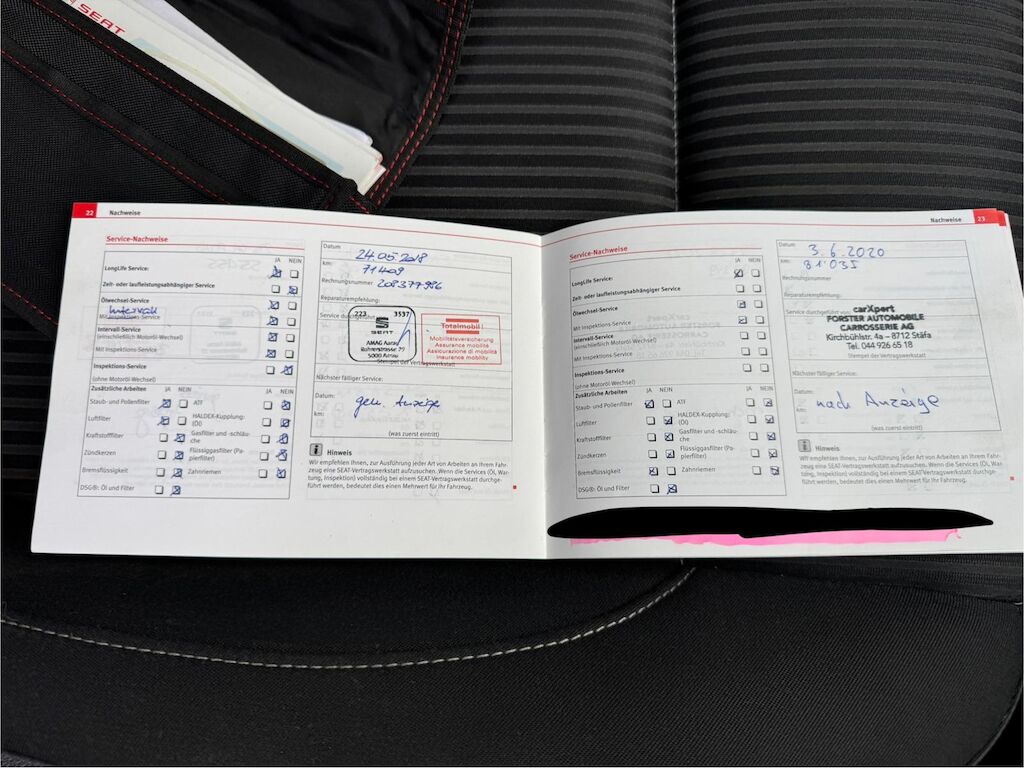 SEAT
22 Nachweise
Service-Nachweise
JA NEIN
LongLife Service:
Zeit- oder laufleistungsabhängiger Service
Ölwechsel-Service
Intervall
Mit Inspektions-Service
Intervall-Service
(einschließlich Motoröl-Wechsel)
Mit Inspektions-Service
Inspektions-Service
(ohne Motoröl-Wechsel)
Zusätzliche Arbeiten JA NEIN JA NEIN
Staub- und Pollenfilter ATF
Luftfilter HALDEX-Kupplung:
(Öl)
Kraftstofffilter Gasfilter und -schläu-
che
Zündkerzen Flüssiggasfilter (Pa-
pierfilter)
Bremsflüssigkeit Zahnriemen
DSG®: Öl und Filter
Datum 24.05.2018
km: 71409
Rechnungsnummer 208377986
Reparaturempfehlung:
Service durchgeführt
223 3537
SEAT
AMAG Aarau
5000 Aarau
Totalmobil!
Mobilitätsversicherung
Assurance mobilité
Assicurazione di mobilità
Insurance mobility
Stempel der Vertragswerkstatt
Nächster fälliger Service:
Datum: gem. Anzeige
km:
(was zuerst eintritt)
Hinweis
Wir empfehlen Ihnen, zur Ausführung jeder Art von Arbeiten an Ihrem Fahr-
zeug eine SEAT-Vertragswerkstatt aufzusuchen. Wenn die Services (Öl, War-
tung, Inspektion) vollständig bei einem SEAT-Vertragswerkstatt durchge-
führt werden, bedeutet dies einen Mehrwert für Ihr Fahrzeug.
Nachweise 23
Service-Nachweise
JA NEIN
LongLife Service:
Zeit- oder laufleistungsabhängiger Service
Ölwechsel-Service
Mit Inspektions-Service
Intervall-Service
(einschließlich Motoröl-Wechsel)
Mit Inspektions-Service
Inspektions-Service
(ohne Motoröl-Wechsel)
Zusätzliche Arbeiten JA NEIN JA NEIN
Staub- und Pollenfilter ATF
Luftfilter HALDEX-Kupplung:
(Öl)
Kraftstofffilter Gasfilter und -schläu-
che
Zündkerzen Flüssiggasfilter (Pa-
pierfilter)
Bremsflüssigkeit Zahnriemen
DSG®: Öl und Filter
Datum: 3.6.2020
km: 81'035
Rechnungsnummer
Reparaturempfehlung:
Service durchgeführt von:
carXpert
FORSTER AUTOMOBILE
CARROSSERIE AG
Kirchbühlstr. 4a – 8712 Stäfa
Tel. 044 926 65 18
Stempel der Vertragswerkstatt
Nächster fälliger Service:
Datum: nach Anzeige
km:
(was zuerst eintritt)
Hinweis
Wir empfehlen Ihnen, zur Ausführung jeder Art von Arbeiten an Ihrem Fahr-
zeug eine SEAT-Vertragswerkstatt aufzusuchen. Wenn die Services (Öl, War-
tung, Inspektion) vollständig bei einem SEAT-Vertragswerkstatt durchge-
führt werden, bedeutet dies einen Mehrwert für Ihr Fahrzeug.